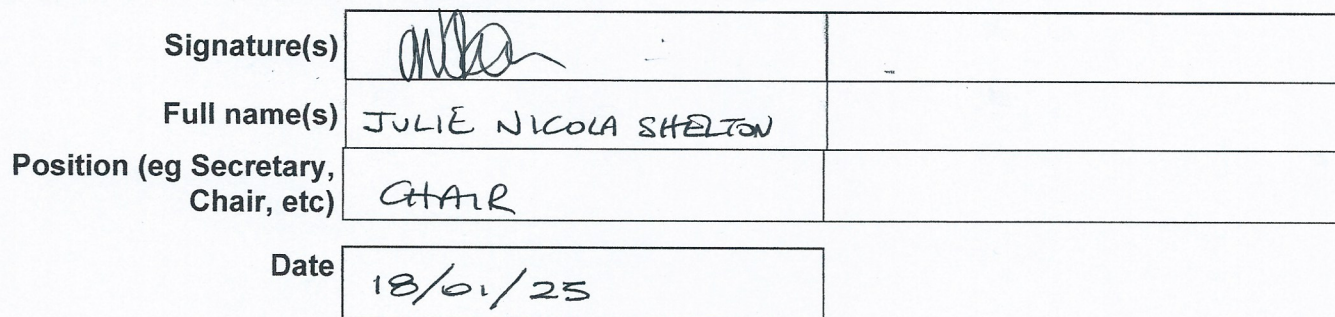 Signature(s)
Full name(s) JULIE NICOLA SHELTON
Position (eg Secretary,
Chair, etc) CHAIR
Date 18/01/25